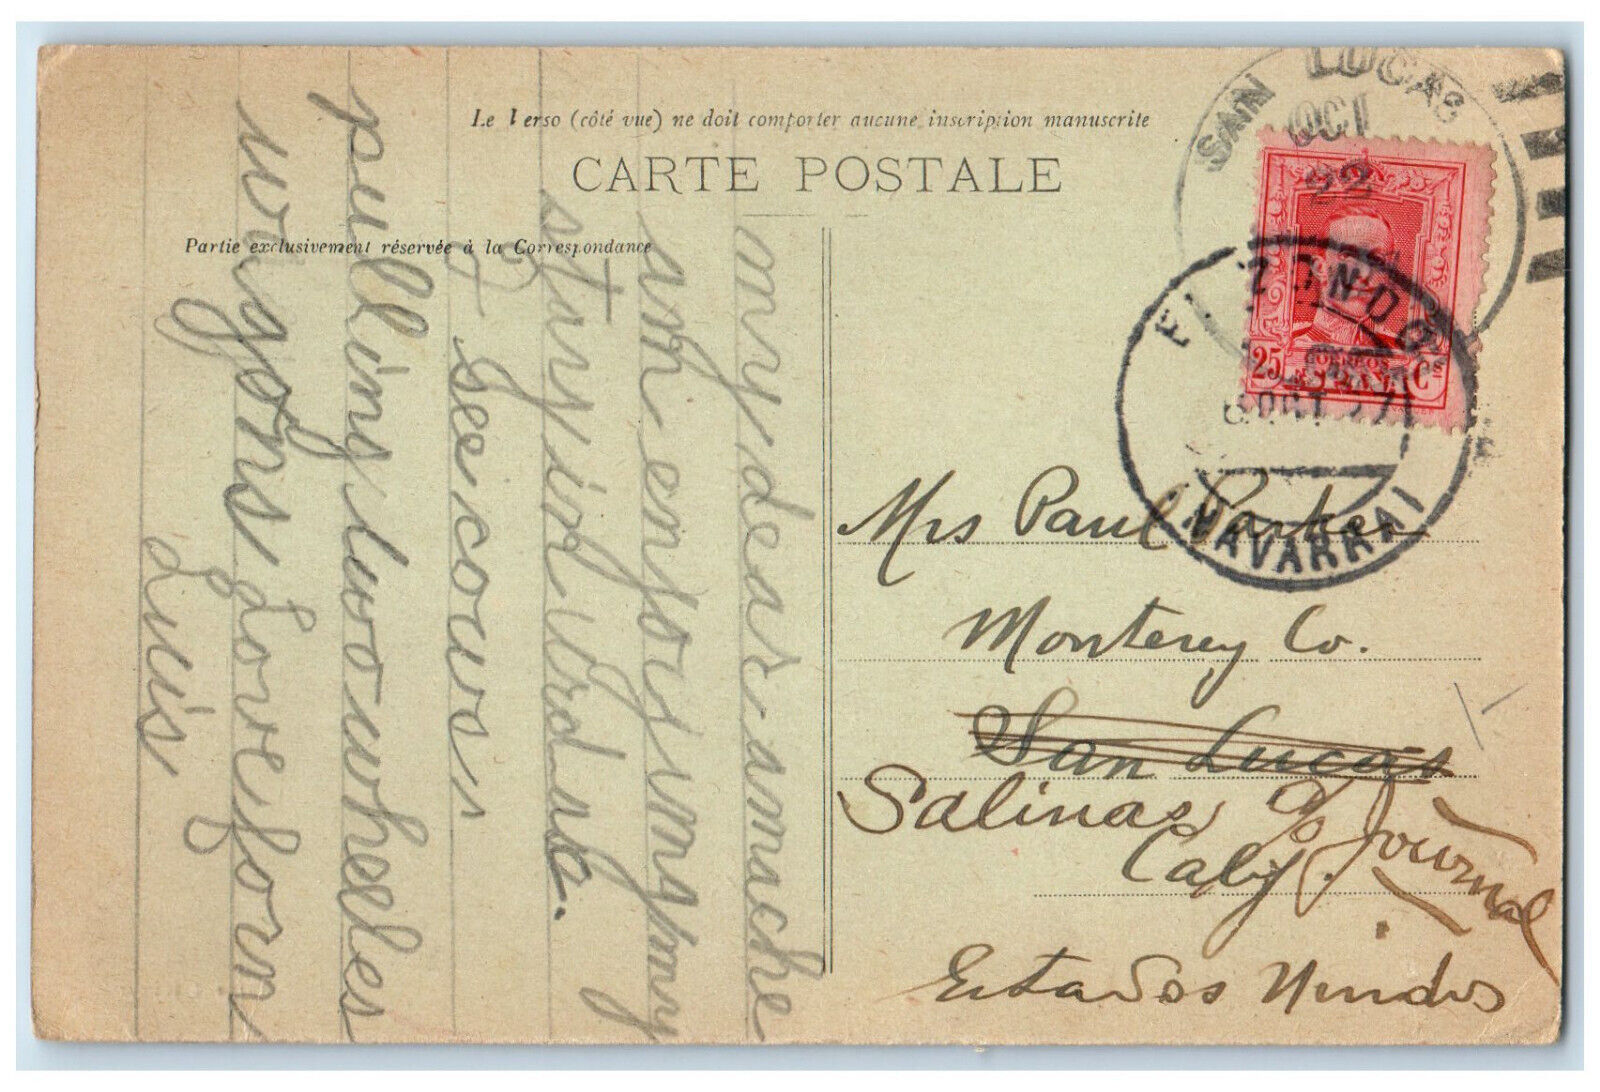 Le Verso (côté vue) ne doit comporter aucune inscription manuscrite
CARTE POSTALE
Partie exclusivement réservée à la Correspondance
SAN LUCAS
OCT
22
ELIZONDO
OCT 27
(NAVARRA)
CORREOS
ESPAÑA
25 Cs
my dear amache
am enjoing my
stay in Urdax.
I see cows
pulling two wheeles
wagons Love from
Luis
Mrs Paul Parker
Monterey Co.
San Lucas
Salinas c/o Journal
Calif.
Estados Unidos